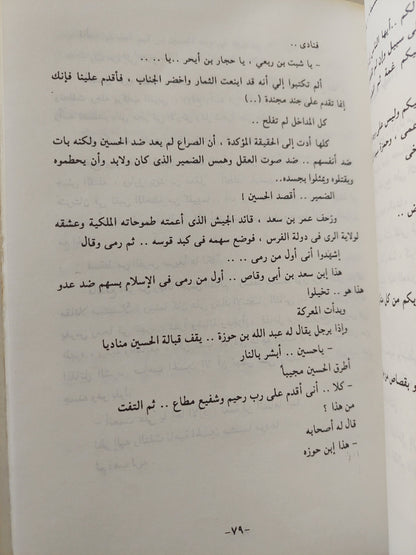 فنادى ..
- يا شبث بن ربعي ، يا حجار بن أيحر ..يا .. ..
ألم تكتبوا إلي أنه قد اينعت الثمار واخضر الجناب ، فأقدم علينا فإنك
إنما تقدم على جند مجندة (..)
كل المداخل لم تفلح ..
كلها أدت إلى الحقيقة المؤكدة ، أن الصراع لم يعد ضد الحسين ولكنه بات
ضد أنفسهم .. ضد صوت العقل وهمس الضمير الذى كان ولابد وأن يحطموه
ويقتلوه ويمثلوا بجسده..
الضمير .. أقصد الحسين !
وزحف عمر بن سعد ، قائد الجيش الذى أعمته طموحاته الملكية وعشقه
لولاية الرى فى دولة الفرس ، فوضع سهمه فى كبد قوسه .. ثم رمى وقال
إشهدوا أنى أول من رمى .. ..
هذا ابن سعد بن أبى وقاص .. أول من رمى فى الإسلام بسهم ضد عدو
هذا هو .. تخيلوا
وبدأت المعركة
وإذا برجل يقال له عبد الله بن حوزة .. يقف قبالة الحسين مناديا
- ياحسين .. أبشر بالنار
أطرق الحسين مجيباً
- كلا .. أنى أقدم على رب رحيم وشفيع مطاع .. ثم التفت
من هذا ؟
قال له أصحابه
- هذا إبن حوزه
-٧٩-